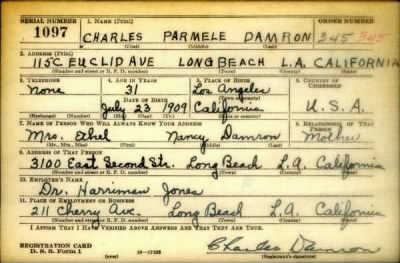 SERIAL NUMBER 1. NAME (Print) ORDER NUMBER
1097 CHARLES PARMELE DAMRON 345 345
(First) (Middle) (Last)
2. ADDRESS (Print)
115C EUCLID AVE LONG BEACH L.A. CALIFORNIA
(Number and street or R. F. D. number) (Town) (County) (State)
3. TELEPHONE 4. AGE IN YEARS 5. PLACE OF BIRTH 6. COUNTRY OF CITIZENSHIP
None 31 Los Angeles
DATE OF BIRTH (Town or county)
July 23 1909 California U.S.A.
(Mo.) (Day) (Yr.) (State or country)
7. NAME OF PERSON WHO WILL ALWAYS KNOW YOUR ADDRESS 8. RELATIONSHIP OF THAT PERSON
Mrs. Ethel Nancy Damron Mother
(Mr., Mrs., Miss) (First) (Middle) (Last)
9. ADDRESS OF THAT PERSON
3100 East Second Str. Long Beach L.A. California
(Number and street or R. F. D. number) (Town) (County) (State)
10. EMPLOYER'S NAME
Dr. Harriman Jones
11. PLACE OF EMPLOYMENT OR BUSINESS
211 Cherry Ave. Long Beach L.A. California
(Number and street or R. F. D. number) (Town) (County) (State)
I AFFIRM THAT I HAVE VERIFIED ABOVE ANSWERS AND THAT THEY ARE TRUE.
REGISTRATION CARD
D. S. S. Form 1 (over) 16—17105 Charles Damron
(Registrant's signature)